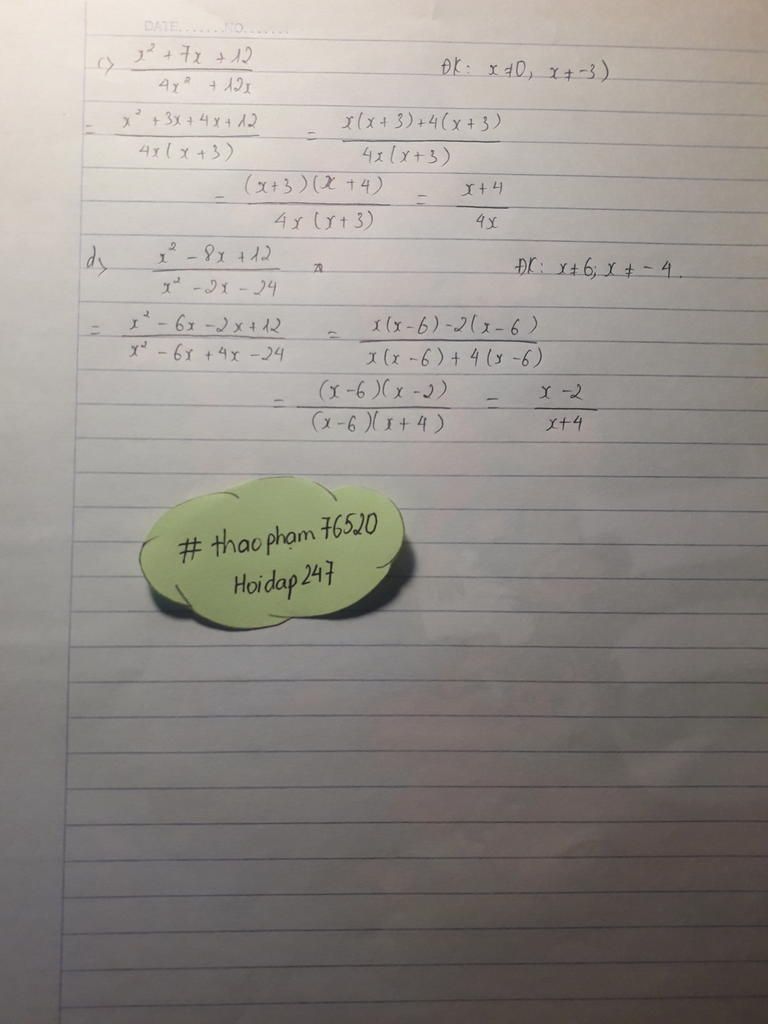 DATE.......NO.......
c) \frac{x² + 7x + 12}{4x² + 12x} ĐK: x ≠ 0, x ≠ -3)
= \frac{x² + 3x + 4x + 12}{4x(x + 3)} = \frac{x(x + 3) + 4(x + 3)}{4x(x + 3)}
= \frac{(x + 3)(x + 4)}{4x(x + 3)} = \frac{x + 4}{4x}
d) \frac{x² - 8x + 12}{x² - 2x - 24} ĐK: x ≠ 6; x ≠ -4.
= \frac{x² - 6x - 2x + 12}{x² - 6x + 4x - 24} = \frac{x(x - 6) - 2(x - 6)}{x(x - 6) + 4(x - 6)}
= \frac{(x - 6)(x - 2)}{(x - 6)(x + 4)} = \frac{x - 2}{x + 4}
# thaophạm76520
Hoidap247